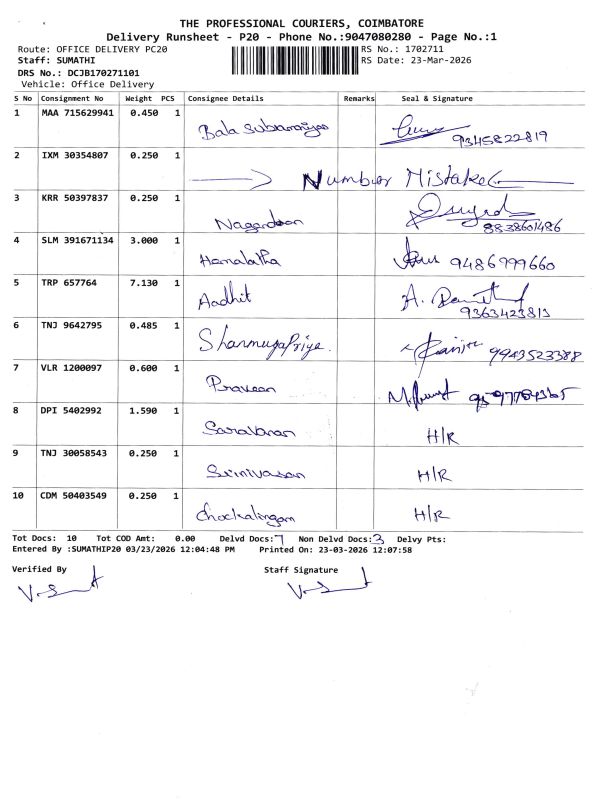 THE PROFESSIONAL COURIERS, COIMBATORE
Delivery Runsheet - P20 - Phone No.:9047080280 - Page No.:1
Route: OFFICE DELIVERY PC20 RS No.: 1702711
Staff: SUMATHI RS Date: 23-Mar-2026
DRS No.: DCJB170271101
Vehicle: Office Delivery
S No Consignment No Weight PCS Consignee Details Remarks Seal & Signature
1 MAA 715629941 0.450 1 9345822819
2 IXM 30354807 0.250 1 Number Mistake
3 KRR 50397837 0.250 1 8838601486
4 SLM 391671134 3.000 1 Hemalatha 9486999660
5 TRP 657764 7.130 1 Aadhit
6 TNJ 9642795 0.485 1 Shanmugapriya. 9943523388
7 VLR 1200097 0.600 1 Praveen
8 DPI 5402992 1.590 1 Saravanan H/R
9 TNJ 30058543 0.250 1 Srinivasan H/R
10 CDM 50403549 0.250 1 Chockalingam H/R
Tot Docs: 10 Tot COD Amt: 0.00 Delvd Docs: 7 Non Delvd Docs: 3 Delvy Pts:
Entered By :SUMATHIP20 03/23/2026 12:04:48 PM Printed On: 23-03-2026 12:07:58
Verified By Staff Signature